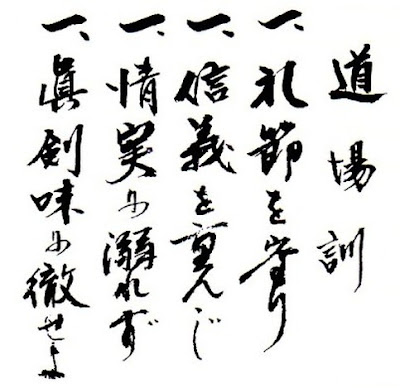 道場訓
一、礼節を守り
一、信義を重んじ
一、情実に溺れず
一、眞剣味に徹せよ